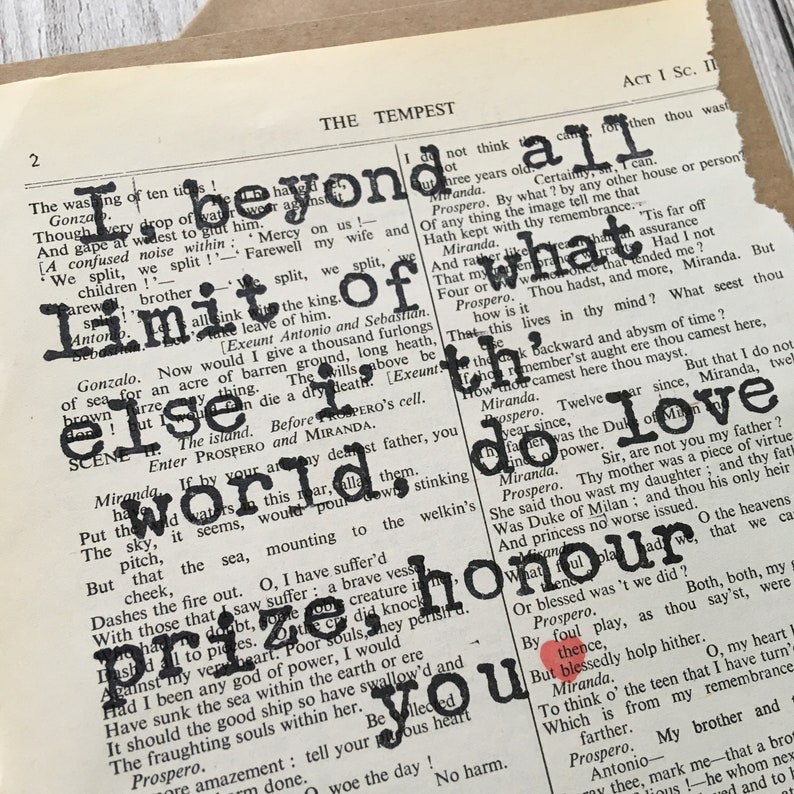 2
THE TEMPEST
ACT I SC. II
I, beyond all
limit of what
else i' th'
world, do love
prize, honour
you
The washing of ten tides !
Gonzalo.
Though every drop of water swear against it,
And gape at widest to glut him.
[A confused noise within : ' Mercy on us !—
' We split, we split ! '—' Farewell my wife and
children ! '—
brother —' We split, we split, we
split ! '—
Antonio. all sink the king.
Sebastian. take leave of him.
[Exeunt Antonio and Sebastian.
Gonzalo. Now would I give a thousand furlongs
of sea for an acre of barren ground, long heath,
brown furze, any thing. The wills above be
done ! but I would fain die a dry death. [Exeunt
SCENE II. The island. Before PROSPERO'S cell.
Enter PROSPERO and MIRANDA.
Miranda. If by your art, my dearest father, you
have
Put the wild waters in this roar, allay them.
The sky, it seems, would pour down stinking
pitch,
But that the sea, mounting to the welkin's
cheek,
Dashes the fire out. O, I have suffer'd
With those that I saw suffer : a brave vessel,
Who had no doubt, some noble creature in her,
Dash'd all to pieces. O, the cry did knock
Against my very heart. Poor souls, they perish'd.
Had I been any god of power, I would
Have sunk the sea within the earth or ere
It should the good ship so have swallow'd and
The fraughting souls within her.
Prospero. Be collected ;
more amazement : tell your piteous heart
harm done.
O, woe the day !
No harm.
I do not think thou canst, for then thou wast
not
Out three years old.
Miranda. Certainly, sir, I can.
Prospero. By what ? by any other house or person ?
Of any thing the image tell me that
Hath kept with thy remembrance.
Miranda. 'Tis far off
And rather like a dream than an assurance
That my remembrance warrants. Had I not
Four or five women once that tended me ?
Prospero. Thou hadst, and more, Miranda. But
how is it
That this lives in thy mind ? What seest thou
In the dark backward and abysm of time ?
If thou remember'st aught ere thou camest here,
How thou camest here thou mayst.
Miranda. But that I do not
Prospero. Twelve year since, Miranda, twelve
year since,
Thy father was the Duke of Milan and
power.
Miranda. Sir, are not you my father ?
Prospero. Thy mother was a piece of virtue
She said thou wast my daughter ; and thy fat
Was Duke of Milan ; and thou his only heir
And princess no worse issued.
Miranda. O the heavens
What foul play had we, that we ca
thence ?
Or blessed was 't we did ?
Prospero. Both, both, my g
By foul play, as thou say'st, were
thence,
But blessedly holp hither.
Miranda. O, my heart
To think o' the teen that I have turn'
Which is from my remembrance
farther.
Prospero. My brother and
Antonio—
pray thee, mark me—that a bro
!—he whom nex
loved and to